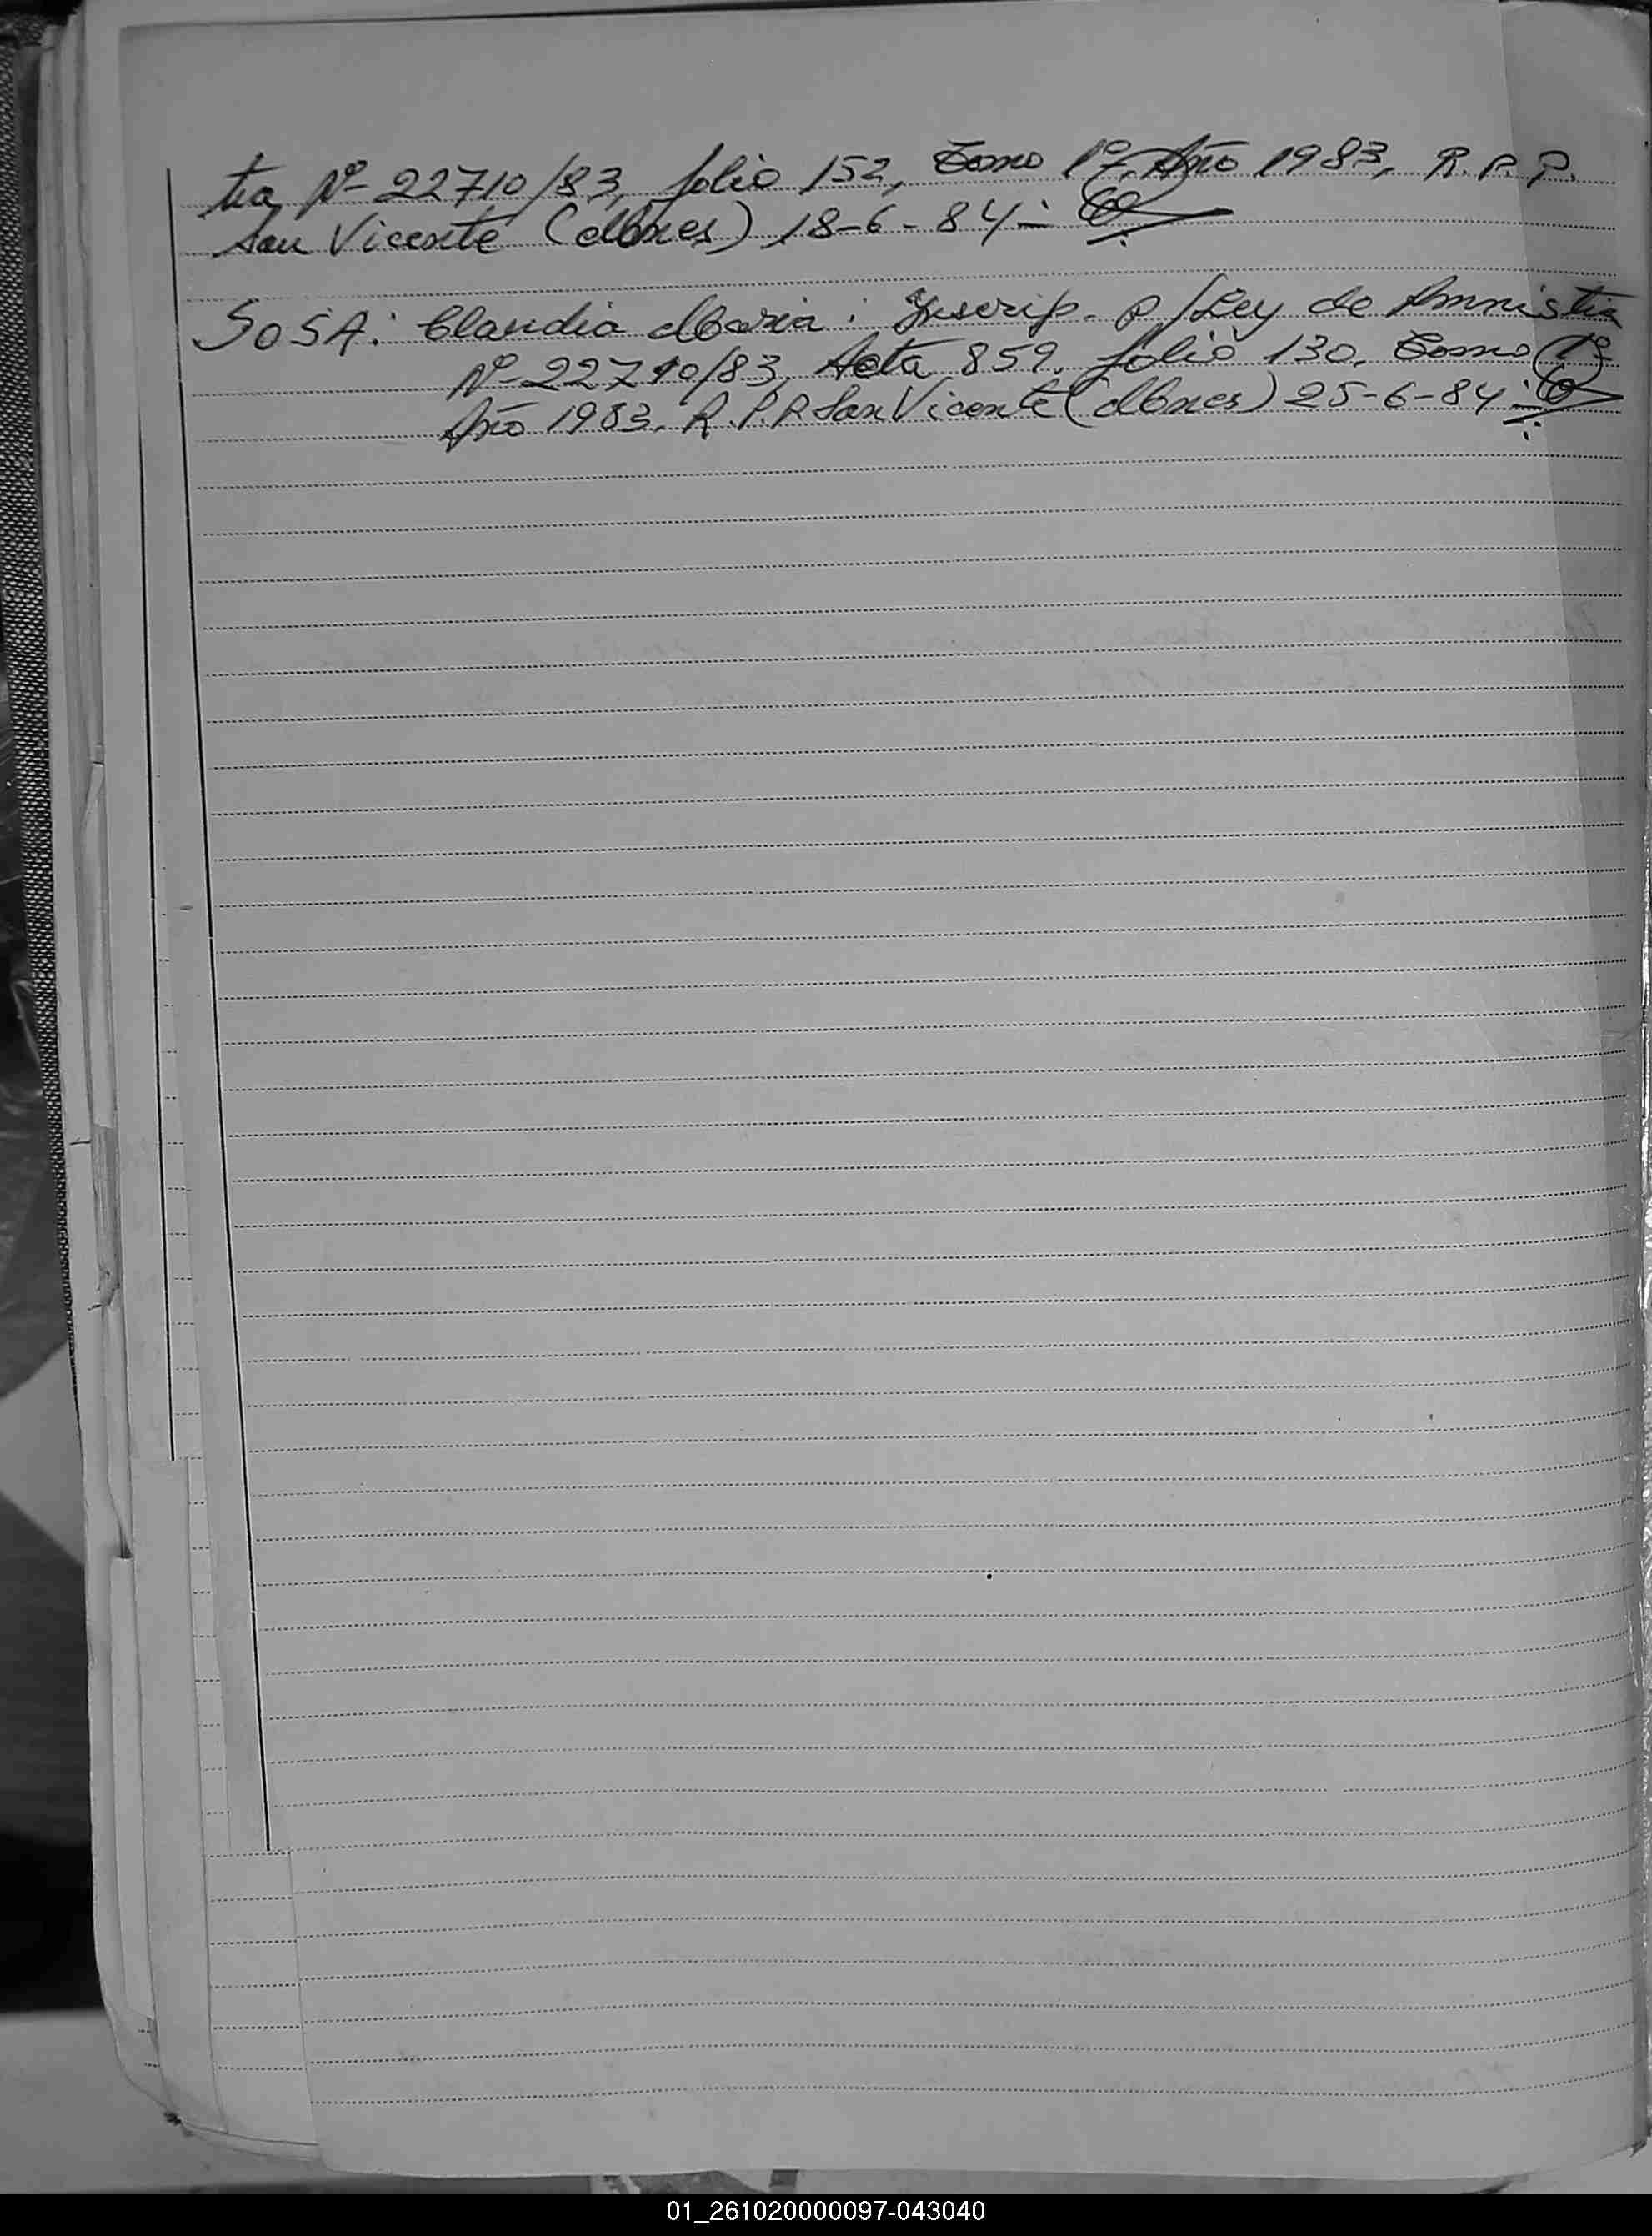 tia Nº 22710/83, folio 152, Tomo 1º, Año 1983, R.P.P.
San Vicente (Mnes) 18-6-84.-
SOSA: Claudia Maria: Inscrip. p/Ley de Amnistia
Nº 22710/83, Acta 859. folio 130, Tomo 1º
Año 1983. R.P.P. San Vicente (Mnes) 25-6-84.-
01_261020000097-043040